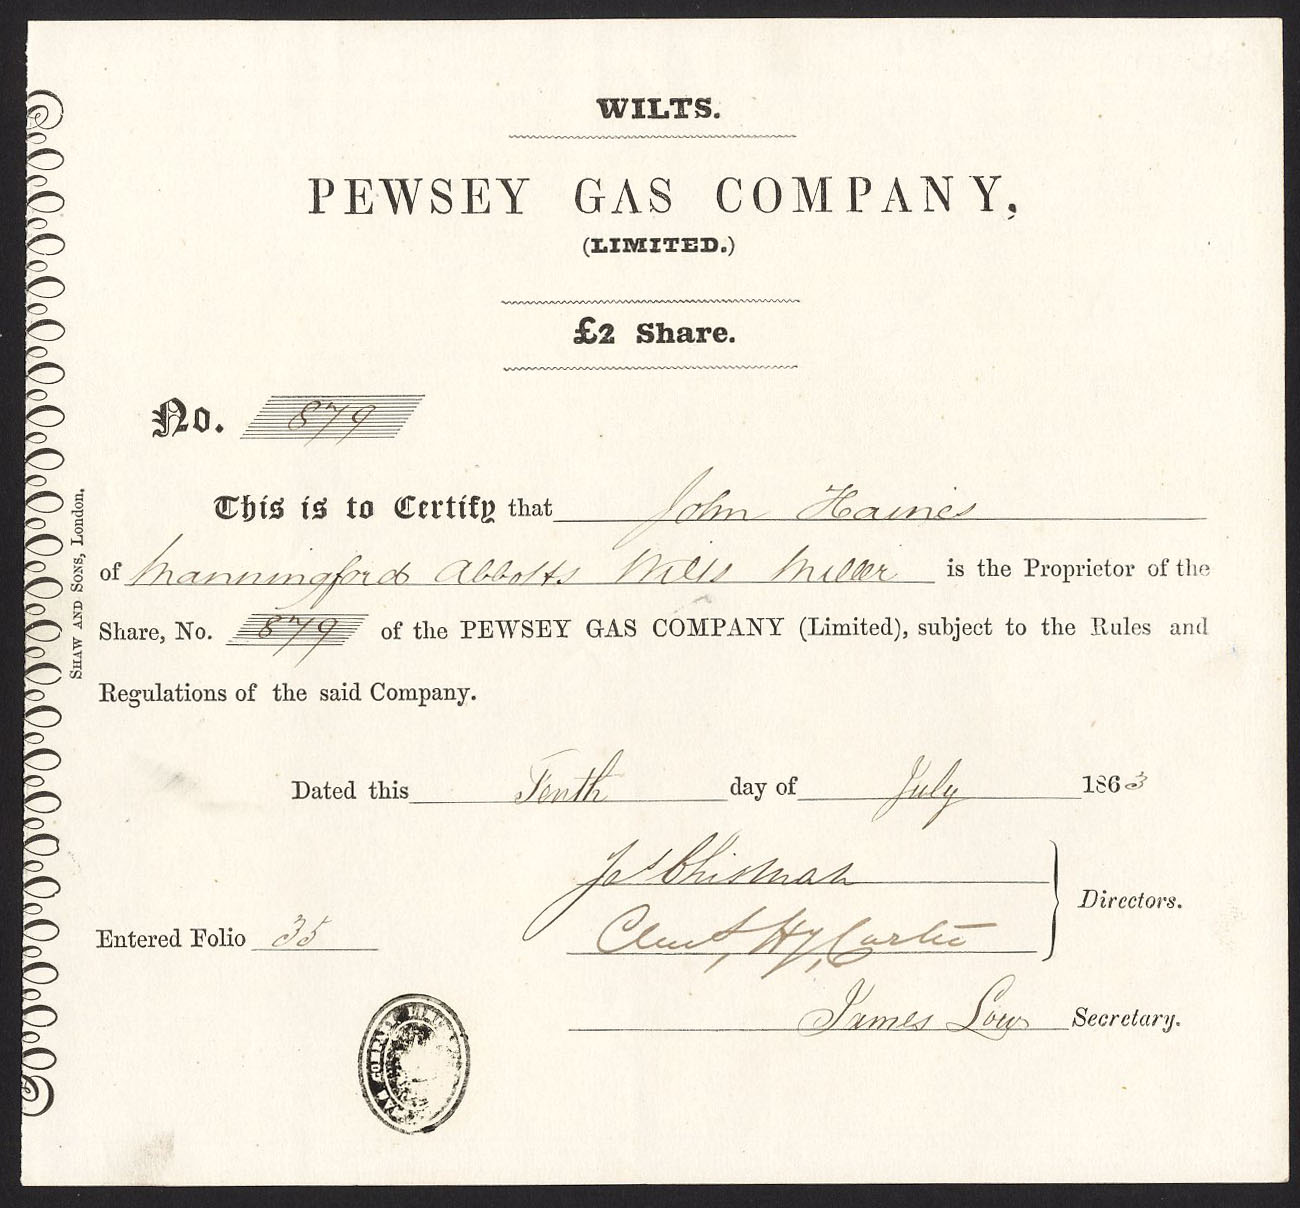 WILTS.
PEWSEY GAS COMPANY,
(LIMITED.)
£2 Share.
No. 879
This is to Certify that John Haines
of Manningford Abbotts Wilts Miller is the Proprietor of the
Share, No. 879 of the PEWSEY GAS COMPANY (Limited), subject to the Rules and
Regulations of the said Company.
Dated this Tenth day of July 1863
Directors.
Entered Folio 35
James Low Secretary.
SHAW AND SONS, London.